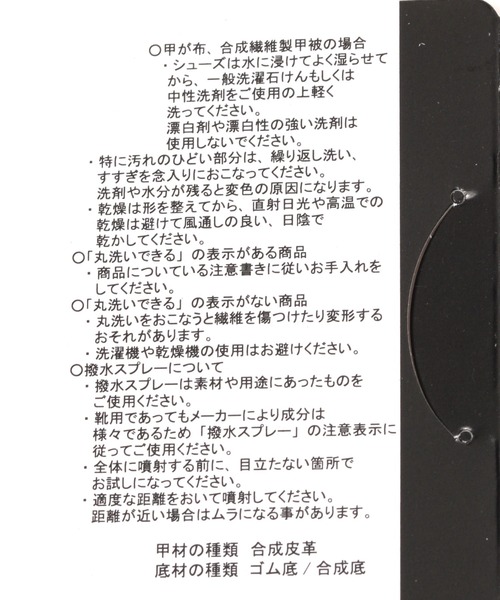 ○甲が布、合成繊維製甲被の場合
・シューズは水に浸けてよく湿らせて
から、一般洗濯石けんもしくは
中性洗剤をご使用の上軽く
洗ってください。
漂白剤や漂白性の強い洗剤は
使用しないでください。
・特に汚れのひどい部分は、繰り返し洗い、
すすぎを念入りにおこなってください。
洗剤や水分が残ると変色の原因になります。
・乾燥は形を整えてから、直射日光や高温での
乾燥は避けて風通しの良い、日陰で
乾かしてください。
○「丸洗いできる」の表示がある商品
・商品についている注意書きに従いお手入れを
してください。
○「丸洗いできる」の表示がない商品
・丸洗いをおこなうと繊維を傷つけたり変形する
おそれがあります。
・洗濯機や乾燥機の使用はお避けください。
○撥水スプレーについて
・撥水スプレーは素材や用途にあったものを
ご使用ください。
・靴用であってもメーカーにより成分は
様々であるため「撥水スプレー」の注意表示に
従ってご使用ください。
・全体に噴射する前に、目立たない箇所で
お試しになってください。
・適度な距離をおいて噴射してください。
距離が近い場合はムラになる事があります。
甲材の種類 合成皮革
底材の種類 ゴム底/合成底